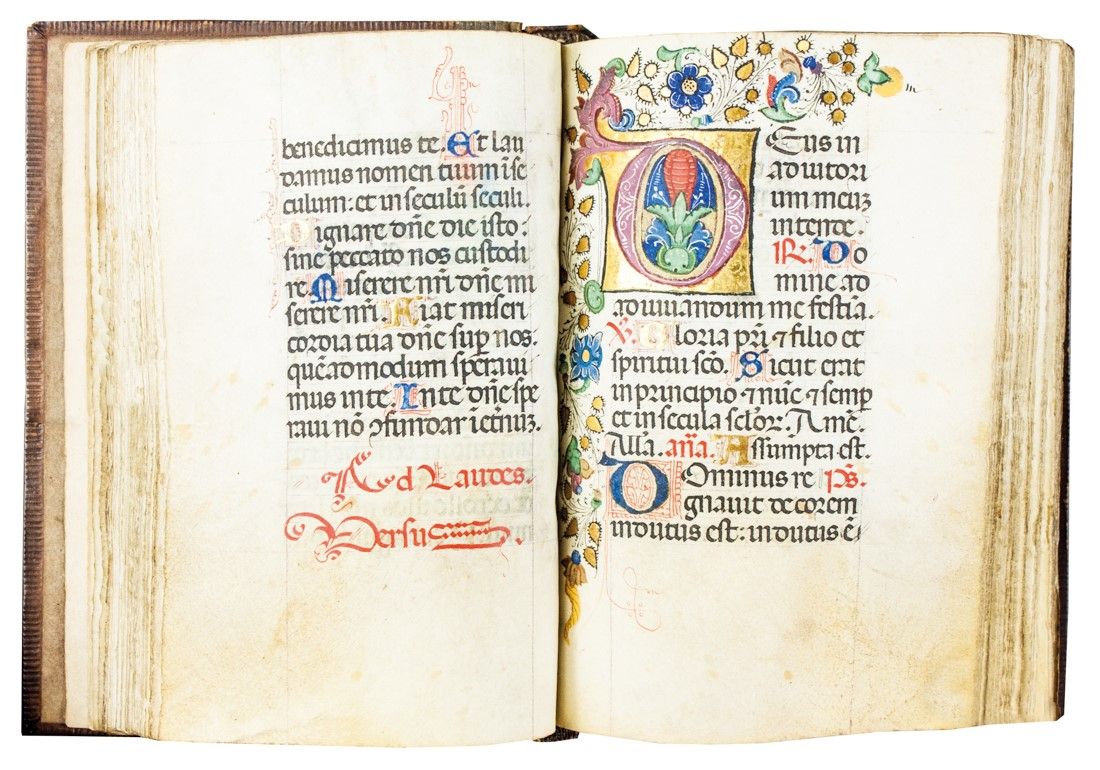 benedicimus te. Et lau
damus nomen tuum ī se
culum: et in seculū seculi.
Dignare dn̄e die isto:
sine peccato nos custodi
re Miserere nr̄i dn̄e mi
serere nr̄i. Fiat miseri
cordia tua dn̄e sup̱ nos.
queādmodum speraui
mus in te. In te dn̄e spe
raui nō ꝯfundar ī etnūꝫ.
Ad Laudes.
Versu
DEus in
adiutori
um meuꝫ
intende.
R. Do
mine ad
adiuuandum me festīa.
V. Gloria pr̄i ⁊ filio et
spiritui scō. Sicut erat
in principio ⁊ nūc ⁊ semꝑ
et in secula sclōꝝ. Amē.
Alla. an̄a. Assumpta est.
DOminus re Ps.
gnauit decorem
indutus est: indutus ē